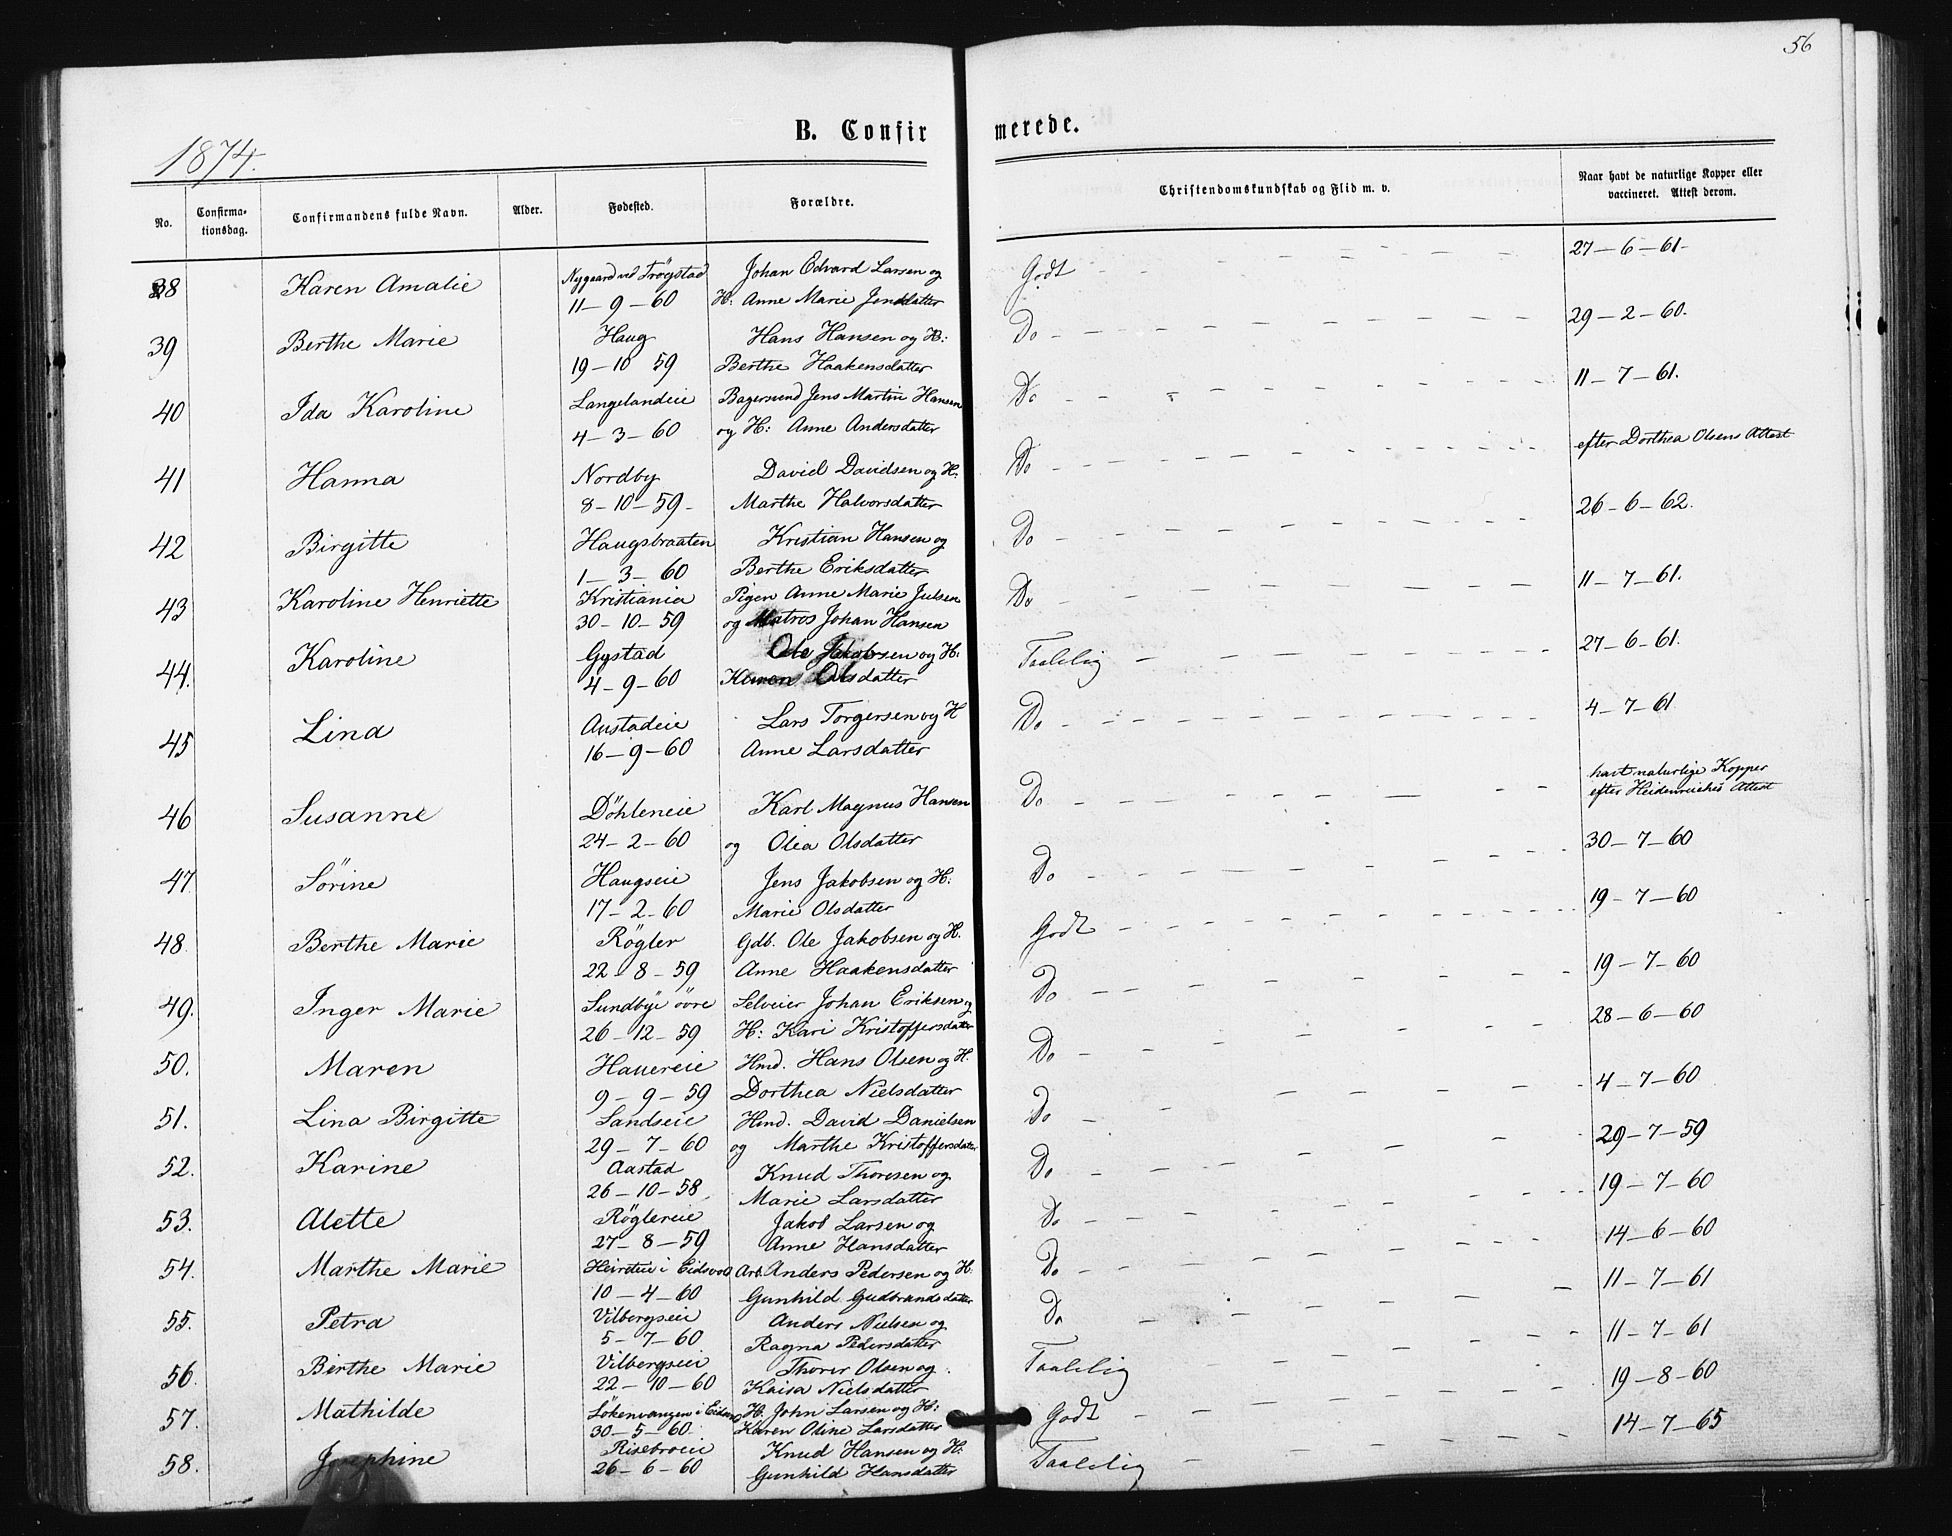 56
B. Confir merede.
1874.
No. Confirma-tionsdag. Confirmandens fulde Navn. Alder. Fødested. Forældre. Christendomskundskab og Flid m. v. Naar havt de naturlige Kopper eller vaccineret. Attest derom.
38 Karen Amalie Nygaard ved Trögstad Johan Edvard Larsen og Godt 27-6-61-
11-9-60 H: Anne Marie Jensdatter
39 Berthe Marie Haug Hans Hansen og H: Do 29-2-60.
19-10 59 Berthe Haakensdatter
40 Ida Karoline Langelandeie Bagersvend Jens Martin Hansen Do 11-7-61.
4-3-60 og H: Anne Andersdatter
41 Hanna Nordby David Davidsen og H: Do efter Dorthea Olsens Attest
8-10-59- Marthe Halvorsdatter
42 Birgitte Haugsbraaten Kristian Hansen og Do 26-6-62.
1-3-60 Berthe Eriksdatter
43 Karoline Henriette Kristiania Pigen Anne Marie Julsen Do 11-7-61.
30-10-59 og Matros Johan Hansen
44. Karoline Gystad Ole Jakobsen og H: Taalelig 27-6-61.
4-9-60 Karen Olsdatter
45 Lina Austadeie Lars Torgersen og H Do 4-7-61
16-9-60 Anne Larsdatter
46 Susanne Döhleneie Karl Magnus Hansen Do havt naturlige Kopper
efter Heidenreichs Attest
24-2-60 og Olea Olsdatter
47 Sörine Haugseie Jens Jakobsen og H: Do 30-7-60
17-2-60 Marie Olsdatter
48 Berthe Marie Rögler Gdb. Ole Jakobsen og H. Godt 19-7-60
22-8-59 Anne Haakensdatter
49. Inger Marie Sundbye övre Selveier Johan Eriksen og Do 19-7-60
26-12-59 H: Kari Kristoffersdatter
50. Maren Hauereie Hmd. Hans Olsen og H. Do 28-6-60
9-9-59 Dorthea Nielsdatter
51. Lina Birgitte Sandseie Hmd. David Danielsen Do 4-7-60
29-7-60 og Marthe Kristoffersdatter
52. Karine Aastad Knud Thoresen og Do 29-7-59
26-10-58 Marie Larsdatter
53. Alette Röglereie Jakob Larsen og Do 19-7-60
27-8-59 Anne Hansdatter
54. Marthe Marie i Eidsvold Arb. Anders Pedersen og H. Do 14-6-60
10-4-60 Gunhild Gudbrandsdatter
55. Petra Vilbergseie Anders Nielsen og Do 11-7-61
5-7-60 Ragna Pedersdatter
56. Berthe Marie Vilbergseie Thorer Olsen og Taalelig 11-7-61
22-10-60 Kaisa Nielsdatter
57. Mathilde Lökenvangen i Eidsvold H. John Larsen og H: Godt 19-8-60
30-5-60 Karen Oline Larsdatter
58. Josephine Risebroeie Knud Hansen og H: Taalelig 14-7-65
26-6-60 Gunhild Hansdatter